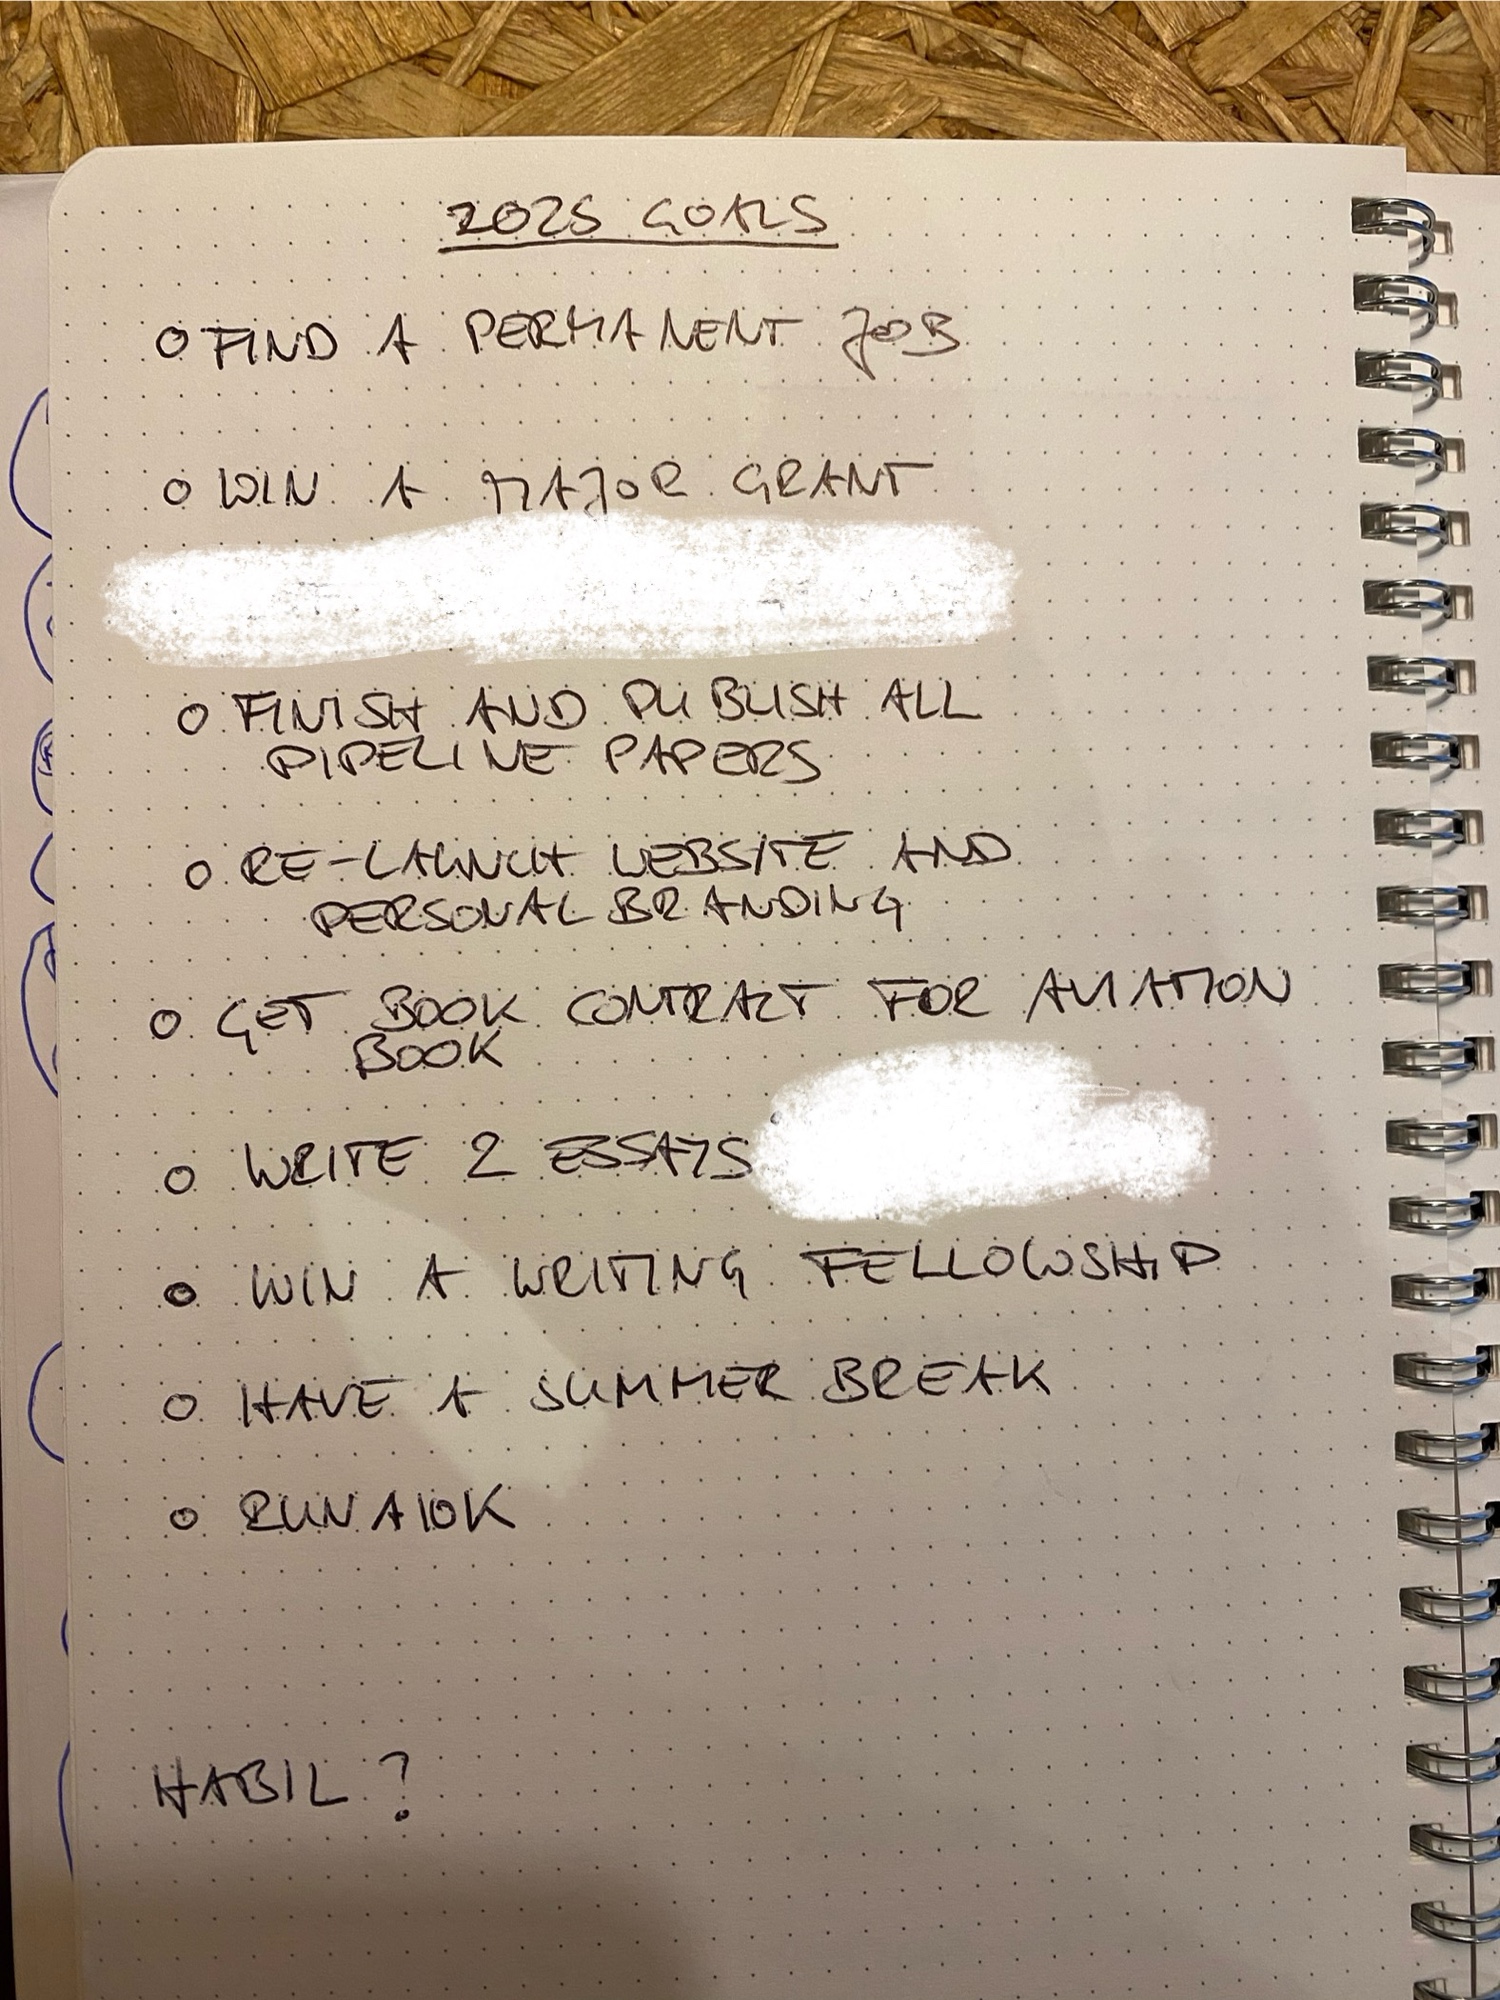 2025 GOALS
o FIND A PERMANENT JOB
o WIN A MAJOR GRANT
o FINISH AND PUBLISH ALL
PIPELINE PAPERS
o RE-LAUNCH WEBSITE AND
PERSONAL BRANDING
o GET BOOK CONTRACT FOR AVIATION
BOOK
o WRITE 2 ESSAYS
o WIN A WRITING FELLOWSHIP
o HAVE A SUMMER BREAK
o RUN A 10K
HABIL?